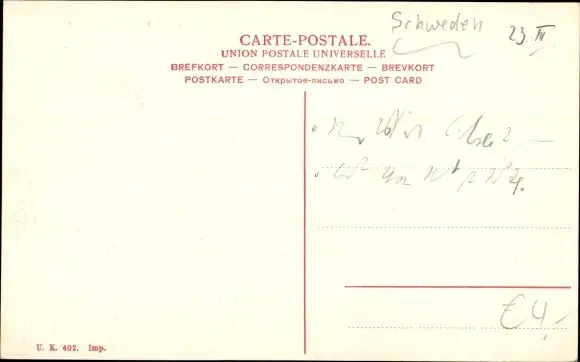 Schweden
23. IV
CARTE-POSTALE.
UNION POSTALE UNIVERSELLE
BREFKORT — CORRESPONDENZKARTE — BREVKORT
POSTKARTE — Открытое-письмо — POST CARD
€ 4,-
U. K. 402. Imp.